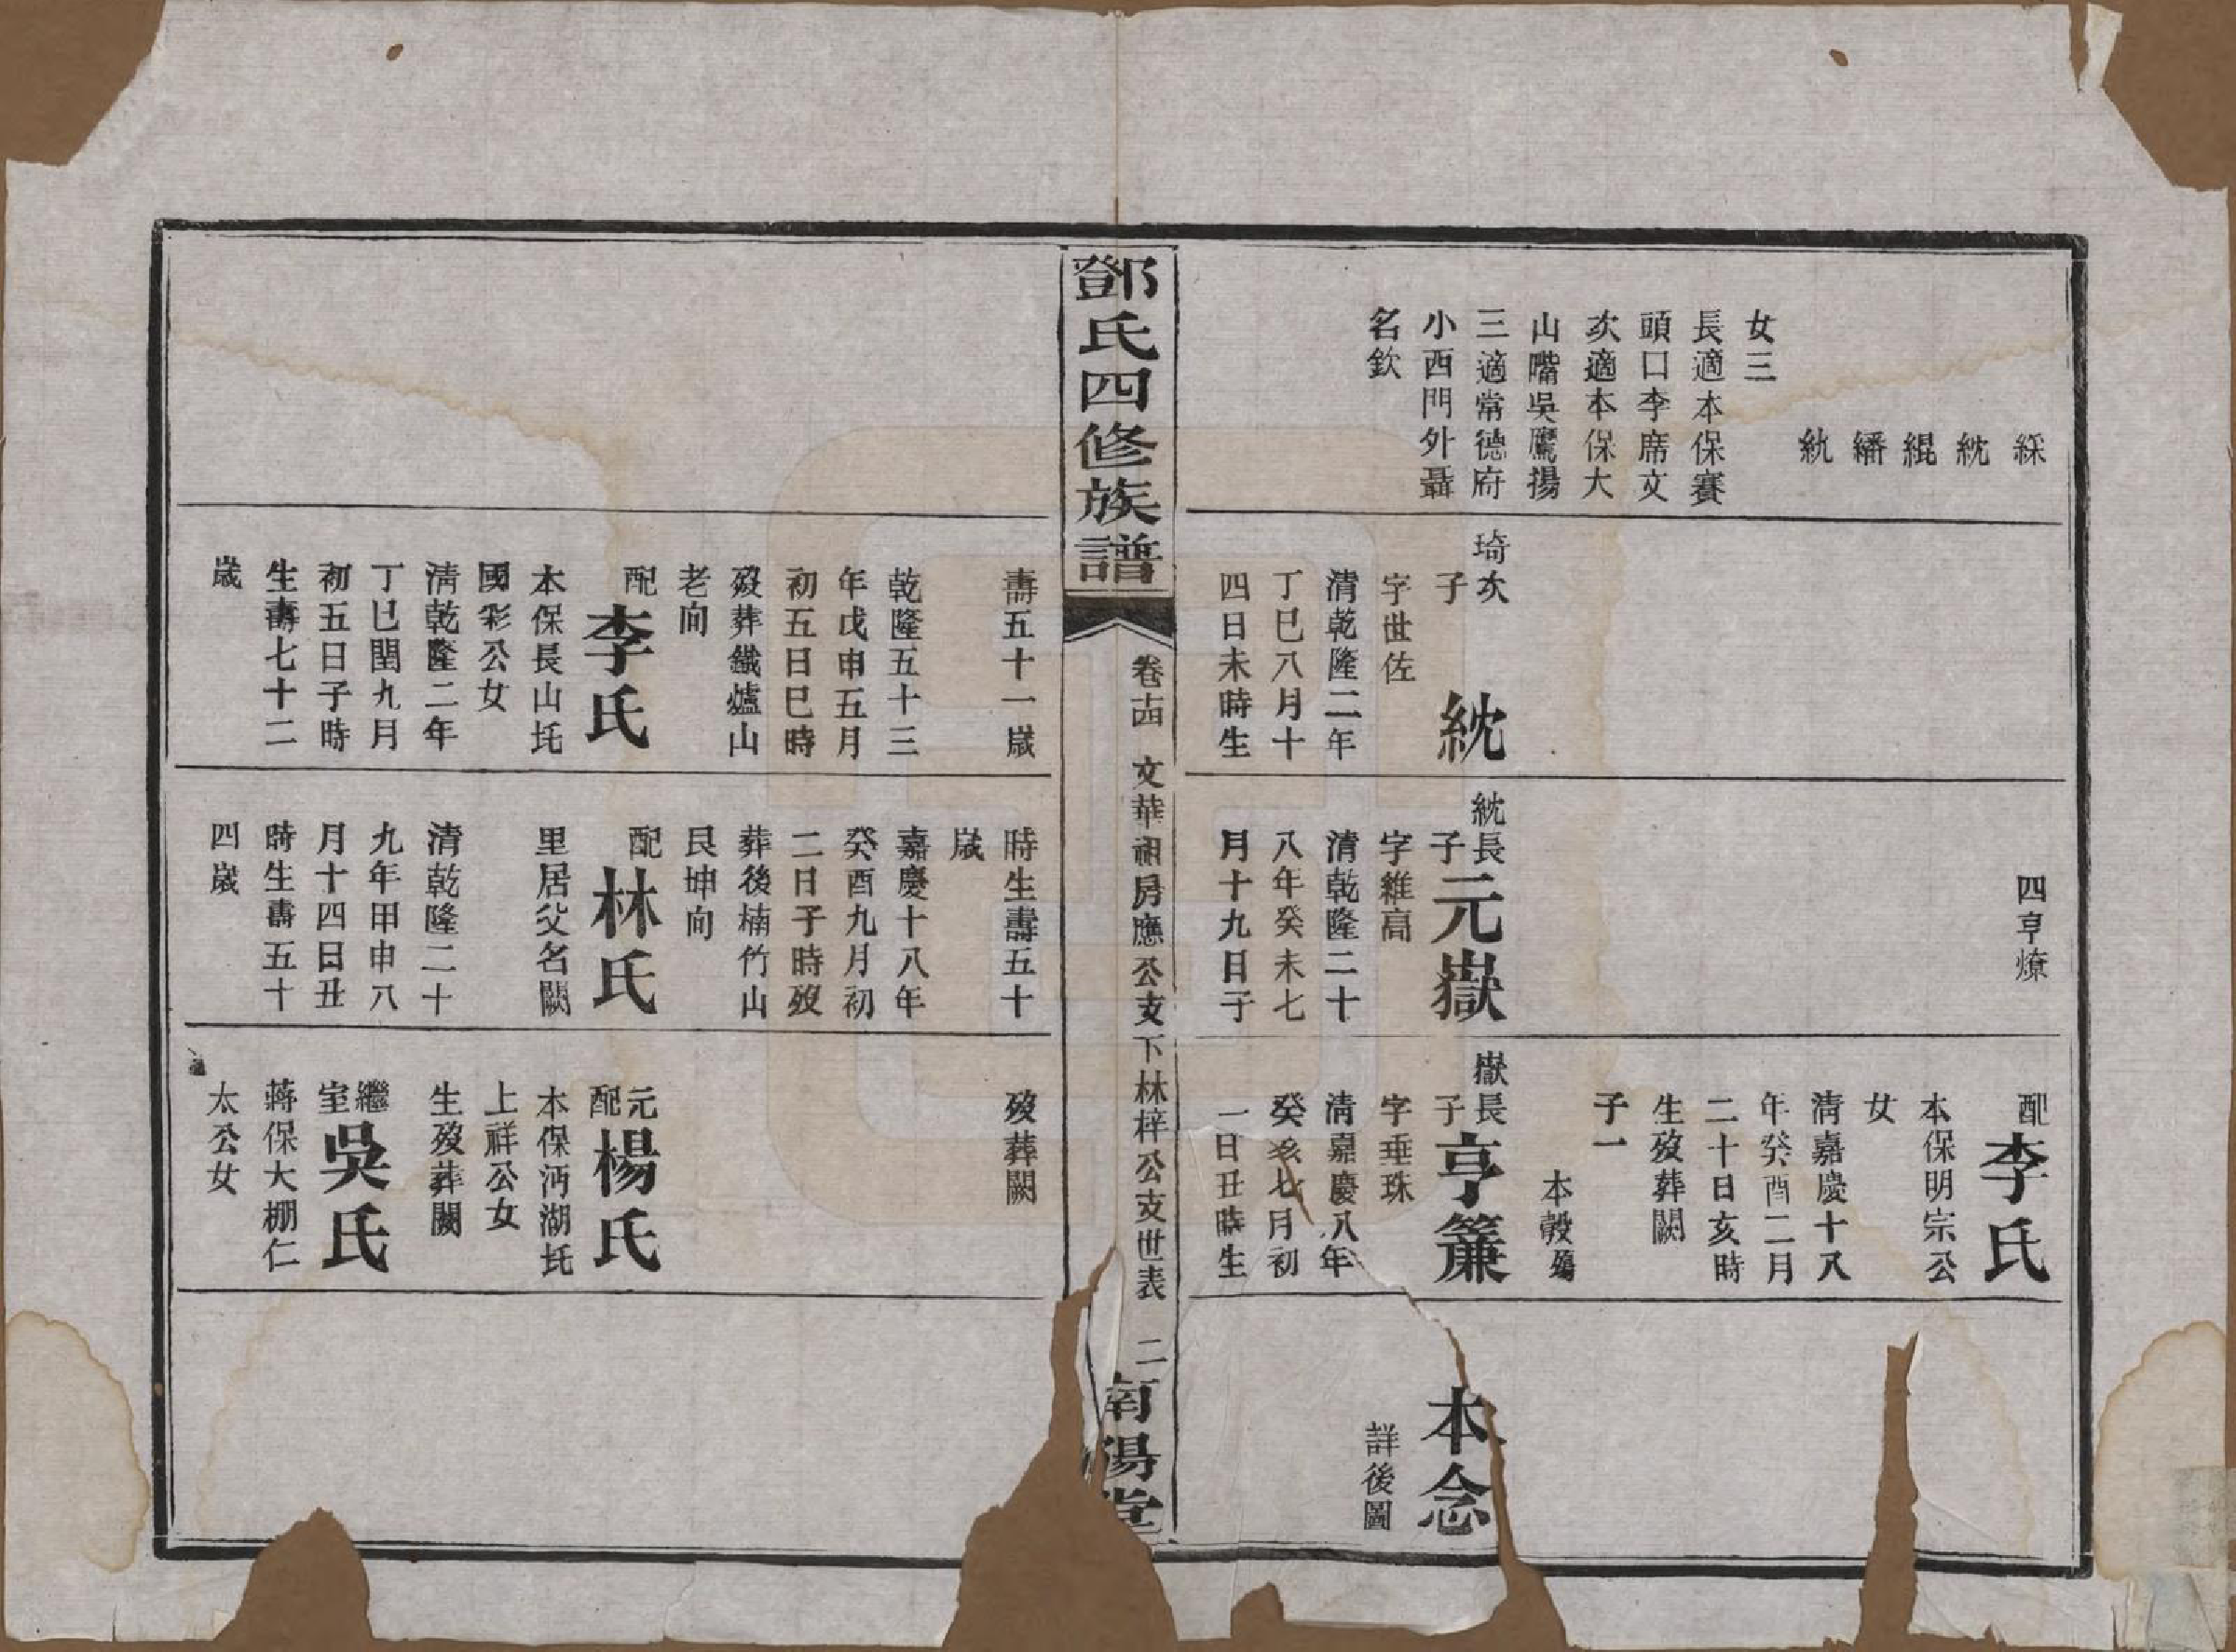 綵
紞
緄
繙
紈
女三
長適本保賽
頭口李席文
次適本保大
山嘴吳鷹揚
三適常德府
小西門外聶
名欽
琦次
子
紞
字世佐
清乾隆二年
丁巳八月十
四日未時生
四亨燎
紞長
子元嶽
字維高
清乾隆二十
八年癸未七
月十九日子
配李氏
本保明宗公
女
清嘉慶十八
年癸酉二月
二十日亥時
生歿葬闕
子一
本穀殤
嶽長
子亨簾
字垂珠
清嘉慶八年
癸亥七月初
一日丑時生
本念
詳後圖
鄧氏四修族譜
卷十四 文華祖房應公支下林梓公支世表 二
南陽堂
壽五十一歲
乾隆五十三
年戊申五月
初五日巳時
歿葬鐵爐山
老向
配李氏
本保長山坉
國彩公女
清乾隆二年
丁巳閏九月
初五日子時
生壽七十二
歲
時生壽五十
歲
嘉慶十八年
癸酉九月初
二日子時歿
葬後楠竹山
艮坤向
配林氏
里居父名闕
清乾隆二十
九年甲申八
月十四日丑
時生壽五十
四歲
歿葬闕
元配楊氏
本保沔湖坉
上祥公女
生歿葬闕
繼室吳氏
蔣保大棚仁
太公女